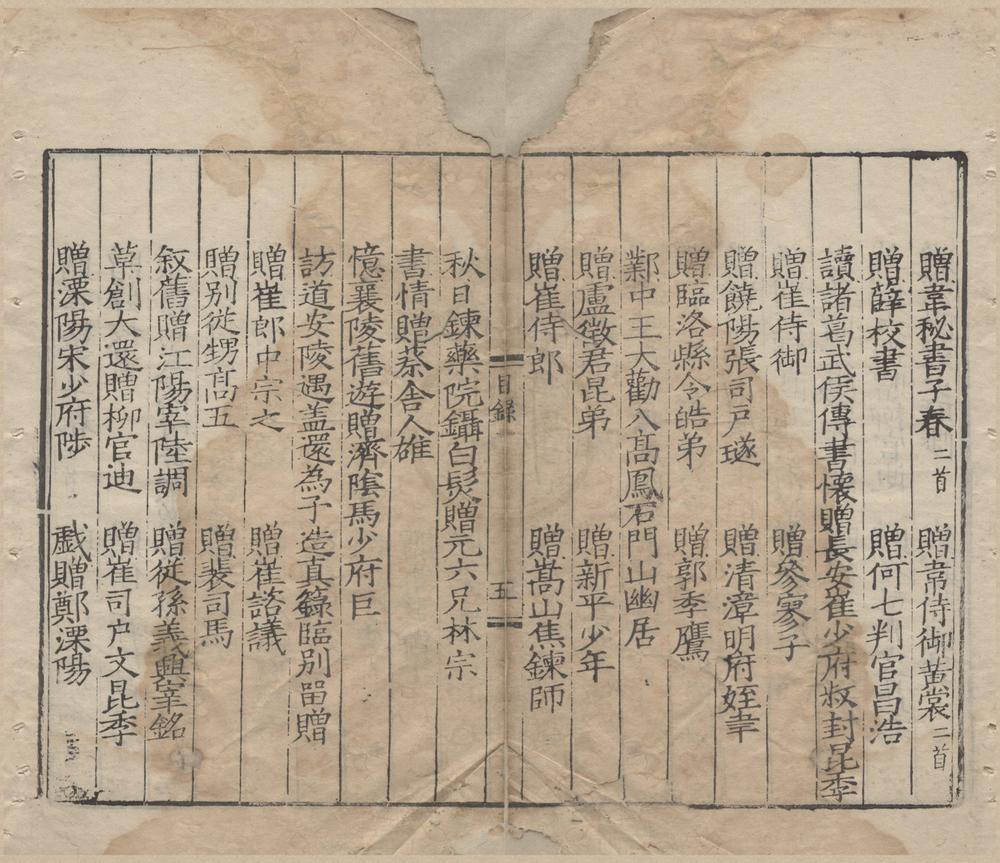 贈韋秘書子春二首　贈韋侍御黃裳二首
贈薛校書　贈何七判官昌浩
讀諸葛武侯傳書懷贈長安崔少府叔封昆季
贈崔侍御　贈參寥子
贈饒陽張司戶璲　贈清漳明府姪聿
贈臨洺縣令皓弟　贈郭季鷹
鄴中王大勸入髙鳳石門山幽居
贈盧徵君昆弟　贈新平少年
贈崔侍郎　贈嵩山焦鍊師
目錄　五
秋日鍊藥院鑷白髮贈元六兄林宗
書情贈蔡舎人雄
憶襄陵舊遊贈濟隂馬少府巨
訪道安陵遇盖還為子造真籙臨别畱贈
贈崔郎中宗之　贈崔諮議
贈别從甥髙五　贈裴司馬
叙舊贈江陽宰陸調　贈從孫義興宰銘
草創大還贈柳官迪　贈崔司户文昆季
贈溧陽宋少府陟　戱贈鄭溧陽